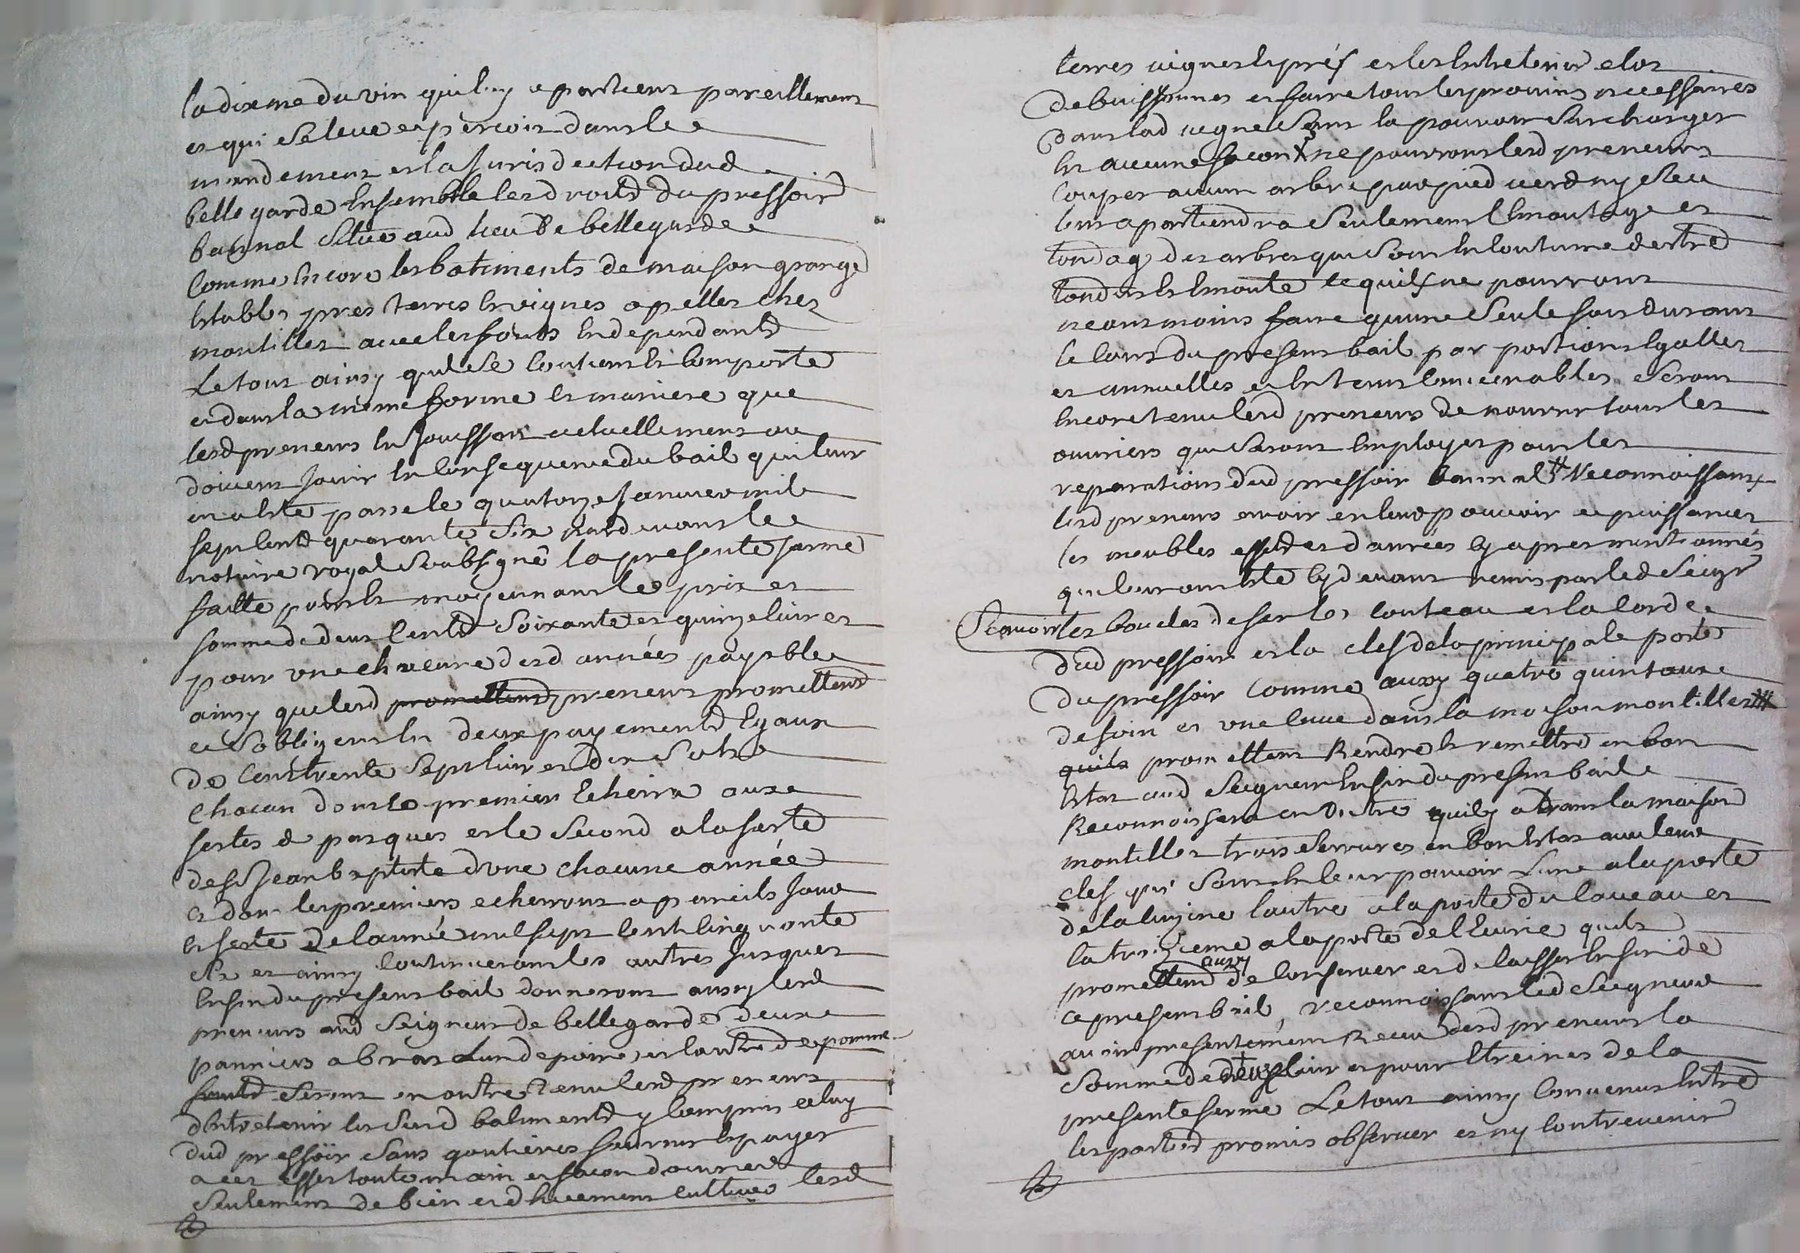 la dixme du vin qui luy apartient pareillement
et qui se leve et perçoit dans le
mandement et la Jurisdiction dud
belle garde Ensemble lesd droits du pressoir
bannal situé aud lieu de bellegarde
Comme Encore les batiments de maison grange
Etables pres terres Et vignes apelles chez
montillet avec les fonds En dependants
Le tout ainsy qu'il se Contient Et Comporte
et dans la meme forme Et maniere que
lesd preneurs En Jouissent actuellement ou
doivent Jouir En Consequence du bail qui leur
en a Eté passé le quatorze Janvier mil
sept Cents quarante Six pardevant le
notaire royal Soubsigné la presente ferme
faitte pour Et moyennant le prix et
somme de deux Cents Soixante et quinze livres
pour une chacune desd années payable
ainsy que lesd promettent preneurs promettent
et S'obligent En deux payements Egaux
de Cent trente Sept livres dix Sols
Chacun dont le premier Echeira aux
festes de pasques et le Second a la feste
de St Jean baptiste d'une chacune année
et dont les premiers echerront a pareils Jour
et feste de l'année mil sept Cent cinquante
et ainsy Continueront les autres Jusques
En fin du present bail donneront aussy lesd
preneurs aud Seigneur de bellegarde deux
panniers a bras L'un de poires et l'autre de pomme
Seront en outre tenu lesd preneurs
d'entretenir les Susd batiments y Compris celuy
dud pressoir Sans goutieres fournir Et payer
a cet effet toute main et facon d'ouvrier
Seulement de bien et duement cultiver lesd
terres vignes Et prés et les Entretenir clos
de buissonnes et faire tous les provins necessaires
dans lad vigne Sans la pouvoir Surcharger
En aucune facon ne pourront lesd preneurs
Couper aucun arbre par pied verd ny Sec
leur apartiendra Seulement L'Emontage et
tondage des arbres qui Sont En Coutume d'estre
tondus Et Emonté ce quils ne pourront
neantmoins faire qu'une Seule fois durant
le Cours du present bail par portions Egalles
et annuelles et En tems Convenables Seront
Encore tenu lesd preneurs de nourrir tous les
ouvriers qui Seront Employes pour les
reparations dud pressoir bannal # Reconnoissant
lesd preneurs avoir en leur pouvoir et puissance
les meubles effets et danrées Cy apres mentionnés
que leur ont Eté Cy devant remis par led Seigr
Scavoir les boucles de fer les Couteau et la Corde
dud pressoir et la clef de la principale porte
du pressoir Comme aussy quatre quintaux
de foin et une Cuve dans la maison montillet #
quils promettent Rendre Et remettre en bon
Etat aud Seigneur En fin du present bail
Reconnoissent en Outre quil y a dans la maison
montillet trois Serrures en bon Etat avec leur
clef qui Sont En leur pouvoir L'une a la porte
de la Cuizine L'autre a la porte du Caveau et
la troizieme a la porte de l'Ecurie quils
promettent aussy de Conserver et de laisser En fin de
ce present bail, reconnoissant led Seigneur
avoir presentement Receu desd preneurs la
Somme de douze livres pour Etreines de la
presente ferme Le tout ainsy Convenu Entre
les parties promis observer et ny Contrevenir